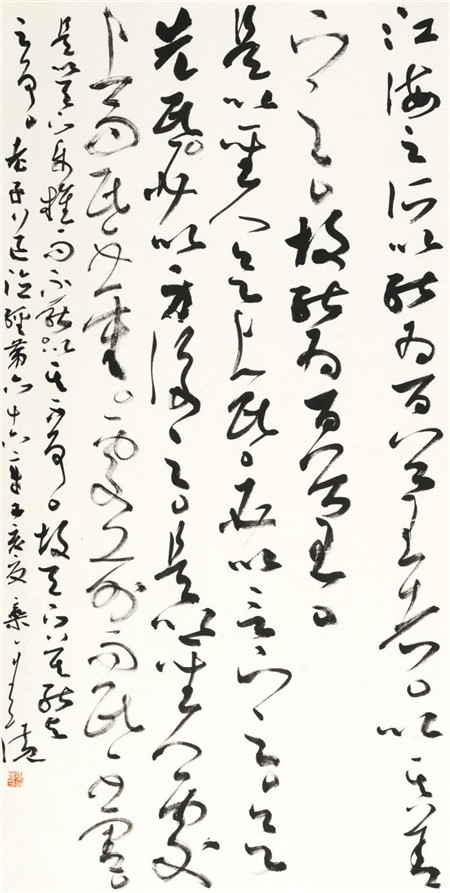 江海之所以能為百谷王者以其善
下之故能為百谷王
是以聖人欲上民必以言下之欲
先民必以身後之是以聖人處
上而民不重處前而民不害
是以天下樂推而不厭以其不爭故天下莫能與
之爭老子道德經第六十六章